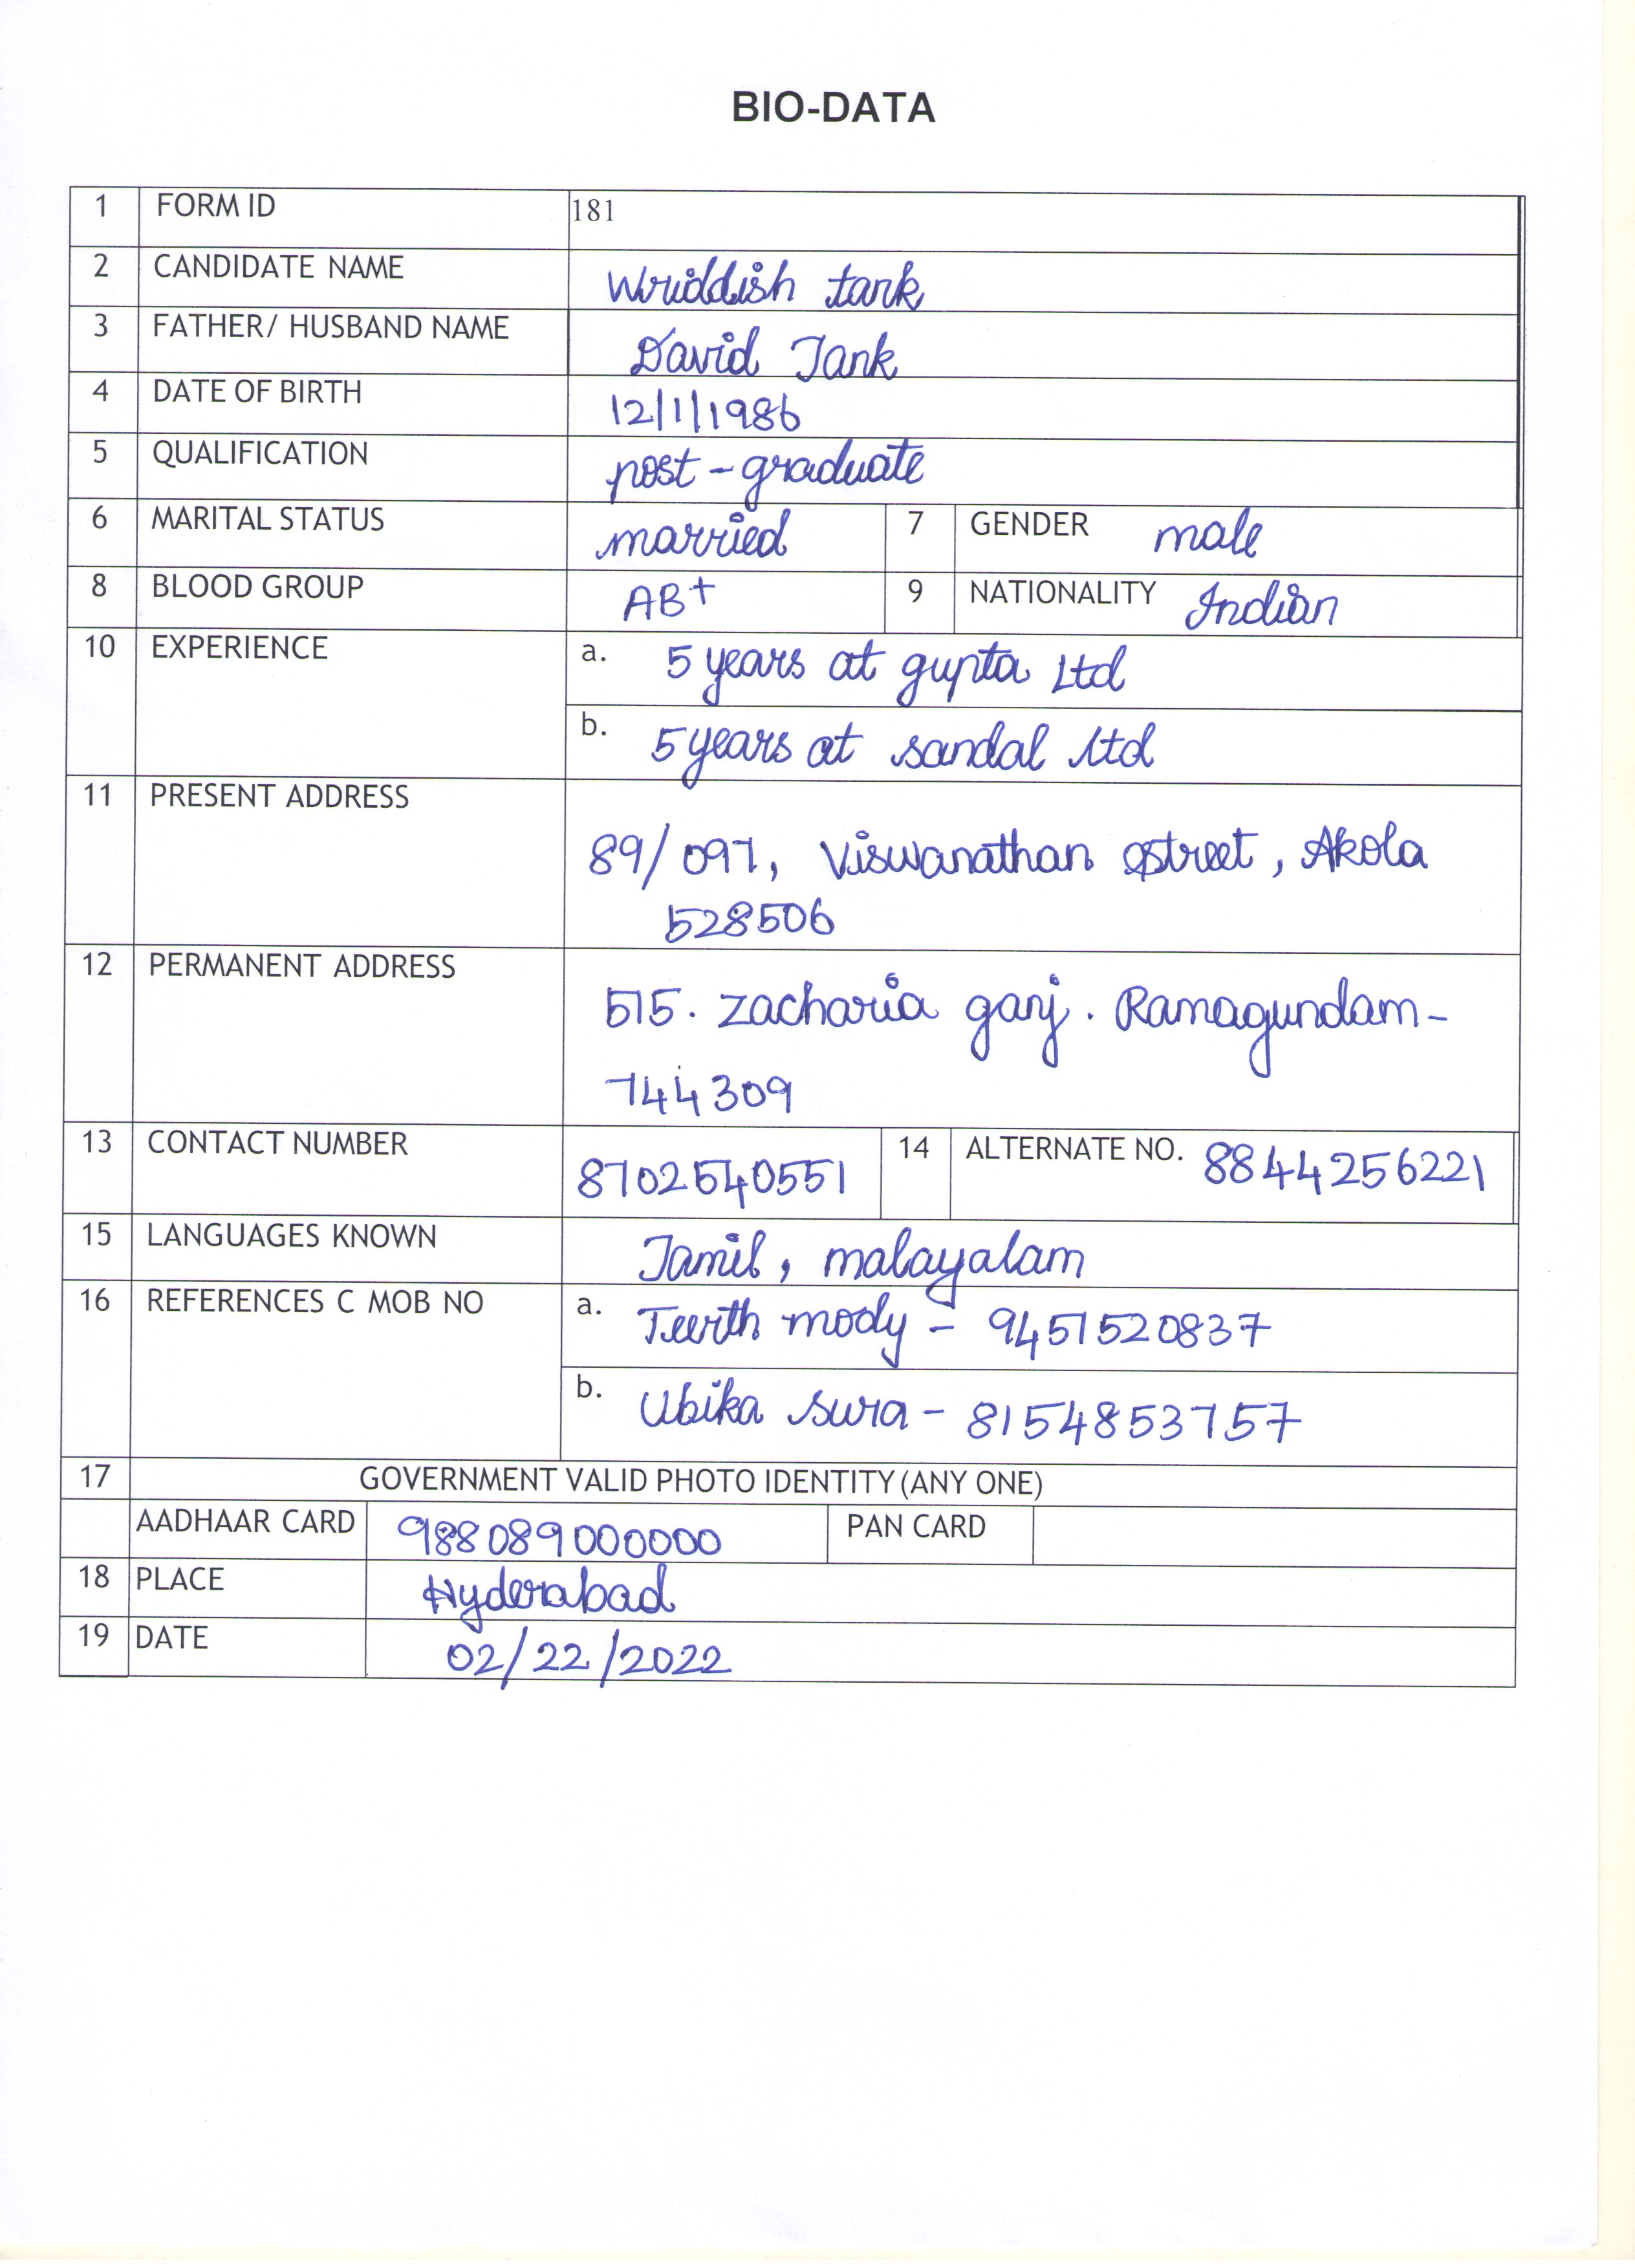 BIO-DATA
1 FORM ID 181
2 CANDIDATE NAME Wriddish tank
3 FATHER/ HUSBAND NAME David Tank
4 DATE OF BIRTH 12/1/1986
5 QUALIFICATION post-graduate
6 MARITAL STATUS married 7 GENDER male
8 BLOOD GROUP AB+ 9 NATIONALITY Indian
10 EXPERIENCE a. 5 years at gupta Ltd
b. 5 years at sandal Ltd
11 PRESENT ADDRESS
89/097, Viswanathan street, Akola
528506
12 PERMANENT ADDRESS
515. Zacharia ganj. Ramagundam-
744309
13 CONTACT NUMBER 8702540551 14 ALTERNATE NO. 8844256221
15 LANGUAGES KNOWN Tamil, malayalam
16 REFERENCES C MOB NO a. Teerth mody - 9451520837
b. Ubika sura - 8154853757
17 GOVERNMENT VALID PHOTO IDENTITY (ANY ONE)
AADHAAR CARD 988089000000 PAN CARD
18 PLACE Hyderabad
19 DATE 02/22/2022